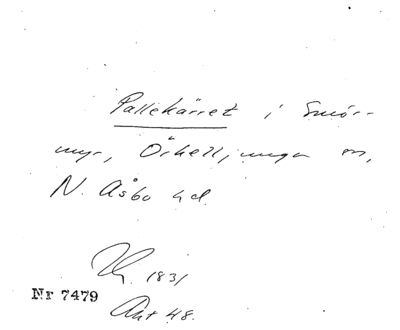 Pallekärret i Smör-
myr, Örkelljunga sn,
N. Åsbo hd.
1831
Nr 7479
Akt 48.